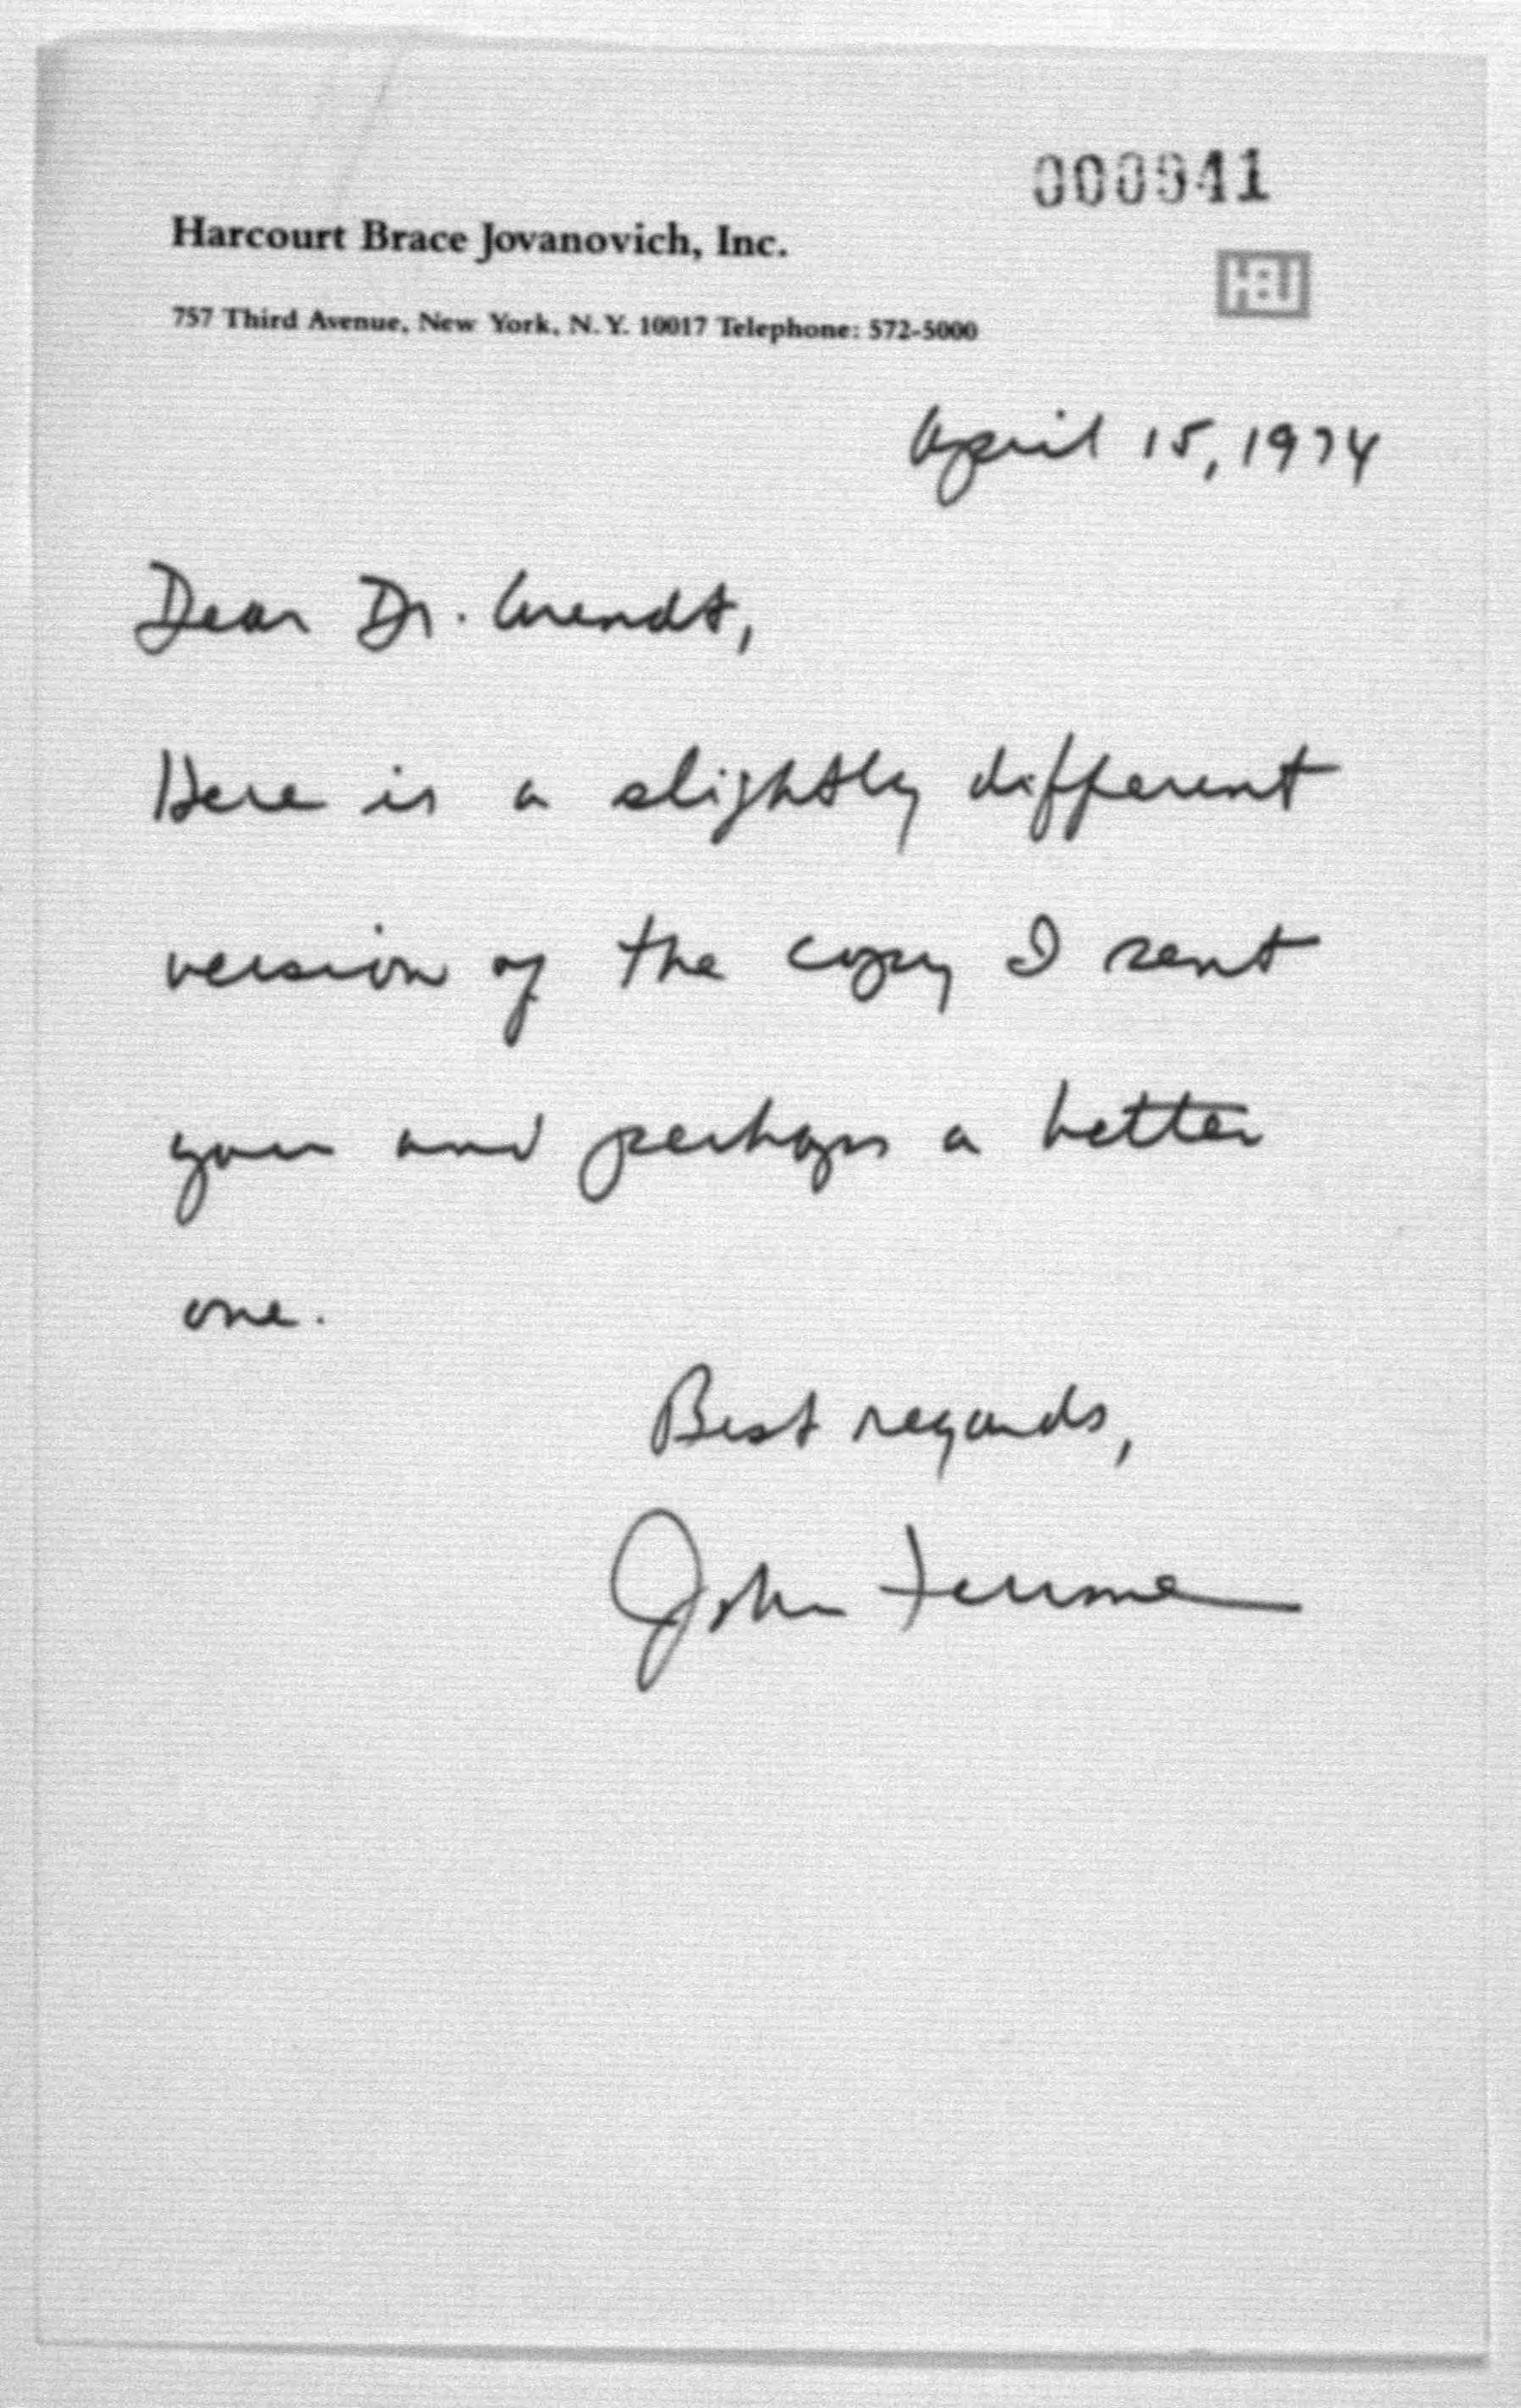 000941
Harcourt Brace Jovanovich, Inc.
HBJ
757 Third Avenue, New York, N.Y. 10017 Telephone: 572-5000
April 15, 1974
Dear Dr. Arendt,
Here is a slightly different
version of the copy I sent
you and perhaps a better
one.
Best regards,
John Ferrone